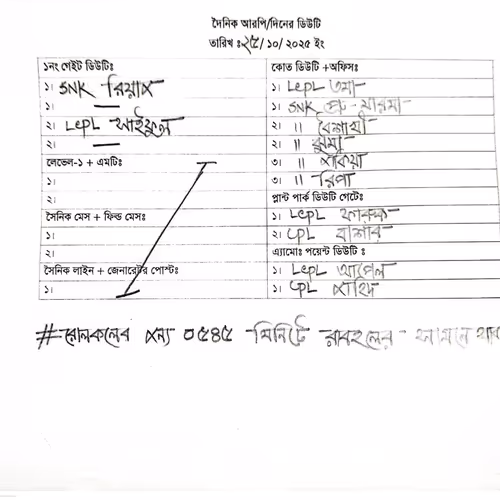 দৈনিক আরপি/দিনের ডিউটি
তারিখ ঃ২৫/১০/২০২৫ ইং
১নং গেইট ডিউটিঃ
১। SNK রিয়াজ
১।
২। LCPL সাইফুল
২।
লেভেল-১ + এমটিঃ
১।
২।
সৈনিক মেস + ফিল্ড মেসঃ
১।
২।
সৈনিক লাইন + জেনারেটর পোস্টঃ
১।
কোত ডিউটি +অফিসঃ
১। LCPL তমা
১। SNK প্রু-মারমা
২। ॥ বৈশাখী
২। ॥ ঝুমা
৩। ॥ জাকিয়া
৩। ॥ রিপা
প্লান্ট পার্ক ডিউটি গেটেঃ
১। LCPL ফারুক
২। CPL বাশার
এ্যামোঃ পয়েন্ট ডিউটি ঃ
১। LCPL আপেল
১। CPL জাহিদ
# রোলকলের জন্য ০৫৪৫ মিনিটে সামনে